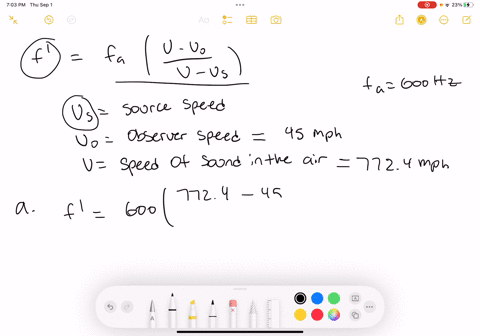 7:03 PM Thu Sep 1
23%
Aa
f' = fa ( U - Uo / U - Us )
fa = 600 Hz
Us = source speed
Uo = observer speed = 45 mph
U = speed of sound in the air = 772.4 mph
a. f' = 600 ( 772.4 - 45